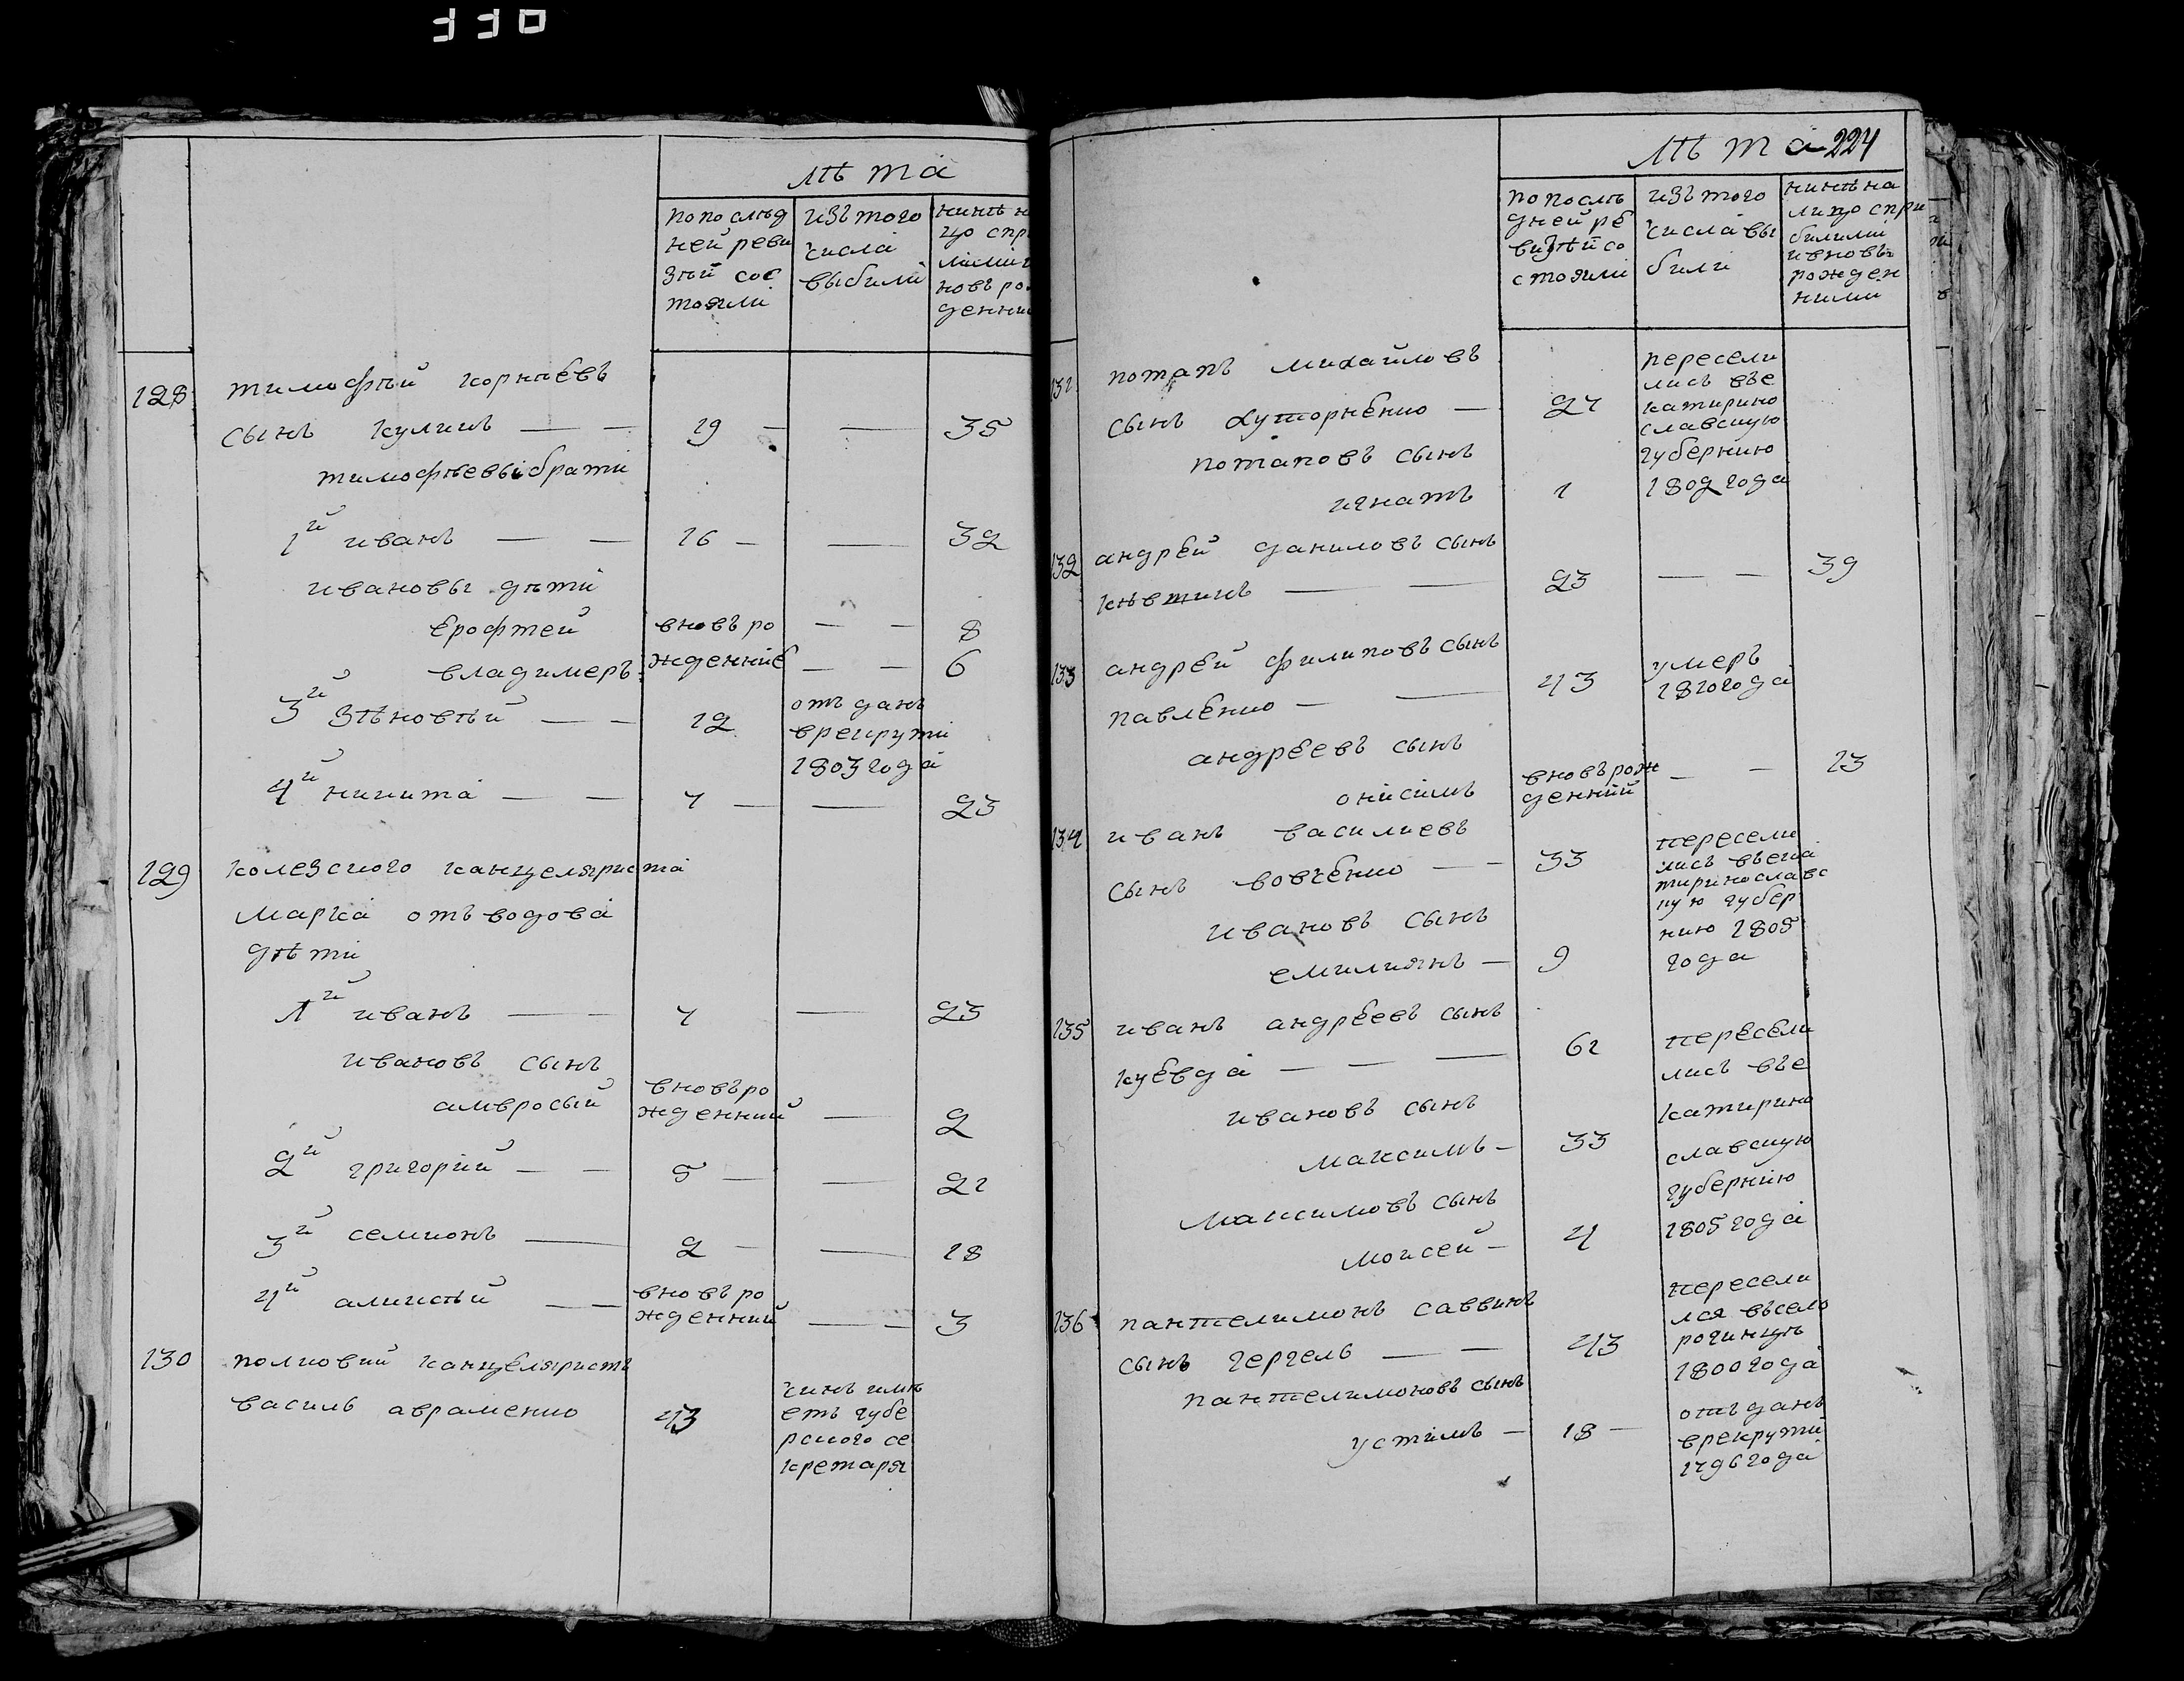 330
лѣта
по послѣд
ней реви
зѣй сос
тояли
изъ того
числа
выбили
нинѣ н
цо спри
новъ ро
денни
128 тимофѣй корнѣевъ
сынъ кулишъ — — 19 — — 35
тимофѣевы братѣ
1й иванъ — — 16 — — 32
ивановы дѣти
ерофтей вновъ ро — — 8
владимеръ жденніе — — 6
3й зѣновѣй — — 12 отъ данъ
врекруты
1803 года
4й никита — — 7 — — 23
129 колезского канцеляриста
марка отъводова
дѣти
1й иванъ — — 7 — 23
ивановъ сынъ
амвросый вновъ ро
жденний — 2
2й григорій — — 5 — — 21
3й семионъ — 2 — — 18
4й аликсѣй — — вновъ ро
жденний — — 3
130 полковий канцеляристъ
василь авраменко 43 чинъ имѣ
етъ губе
рского се
кретаря
лѣта 224
по послѣ
дней ре
визѣй со
стояли
изъ того
числа вы
били
нинѣ на
лицо спри
билими
ивновь
рожден
ними
131 потапъ михайловъ
сынъ хуторненко — 27 пересели
лисъ въе
катирино
славскую
губернию
1802 года
потаповъ сынъ
игнатъ 1
132 андрей даниловъ сынъ
квѣтинъ — — 23 — — 39
133 андрей филиповъ сынъ
павленко — — 43 умеръ
1810 года
андреевъ сынъ
онісімъ вновъ рож
денний — — 13
134 иванъ василиевъ
сынъ вовченко — — 33 пересели
лисъ въека
тиринославс
кую губер
нию 1805
года
ивановъ сынъ
емилиянъ — 9
135 иванъ андреевъ сынъ
куевда — — — 61 пересели
лисъ въе
катирино
славскую
губернию
1805 года
ивановъ сынъ
максимъ — 33
максимовъ сынъ
моисей — 4
136 пантелимонъ саввинъ
сынъ гергель — — 43 пересели
лся въсело
рогинцѣ
1800 года
пантелимоновъ сынъ
устімъ — 18 — отъ данъ
врекруты
1796 года